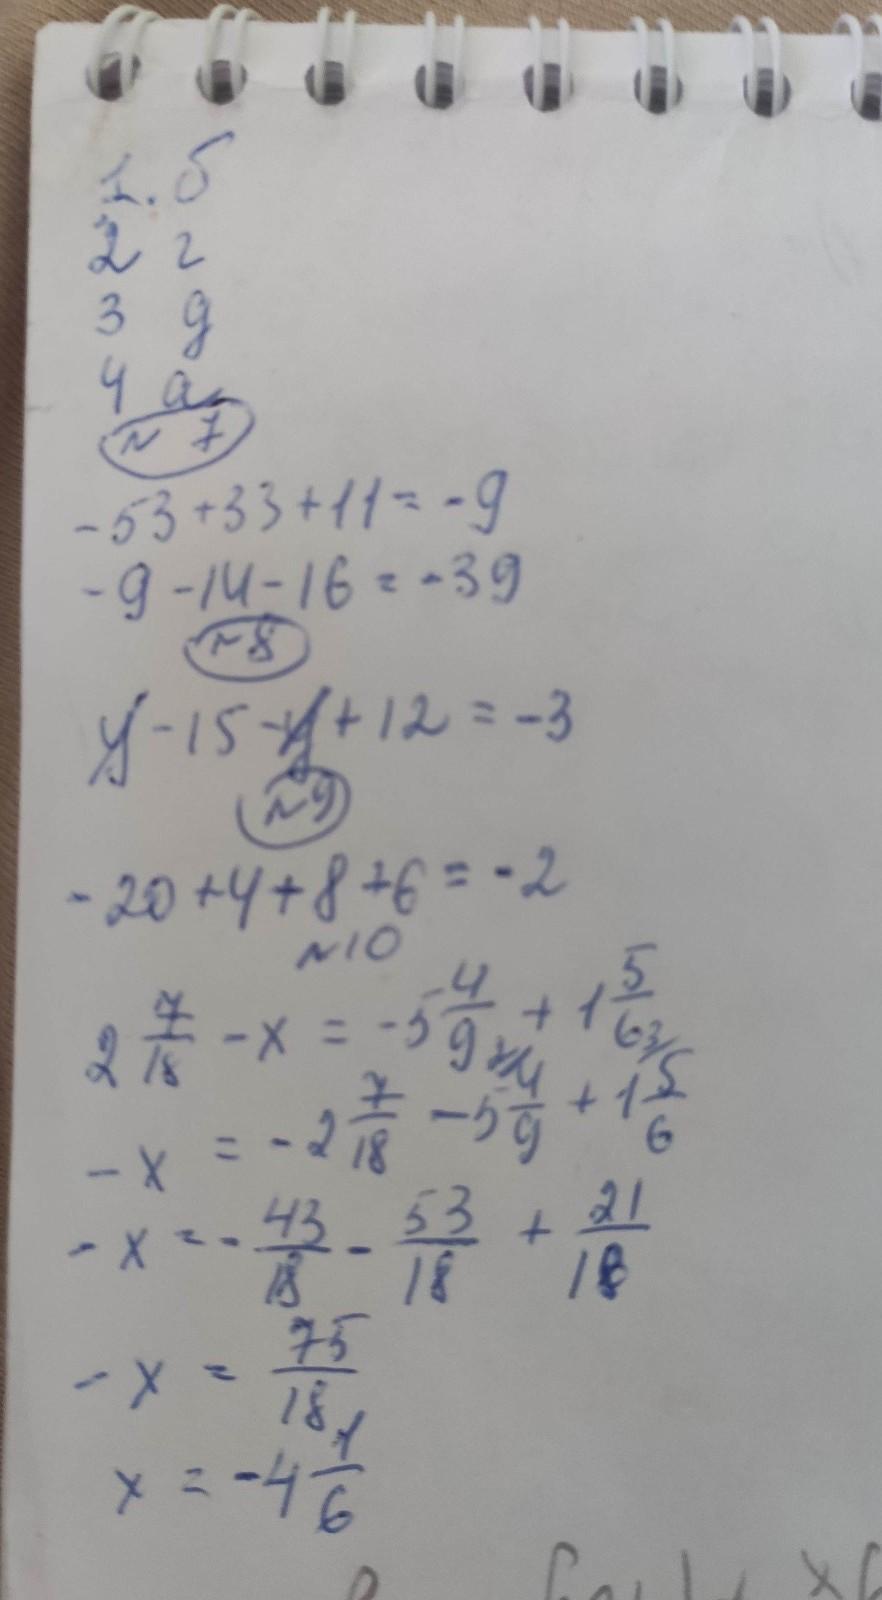 1. б
2 г
3 д
4 а
№ 7
-53+33+11=-9
-9-14-16=-39
№8
y-15-y+12=-3
№9
-20+4+8+6=-2
№10
2 7/18 - x = -5 4/9 + 1 5/6
-x = -2 7/18 - 5 4/9 + 1 5/6
-x = -43/18 - 53/18 + 21/18
-x = 75/18
x = -4 1/6